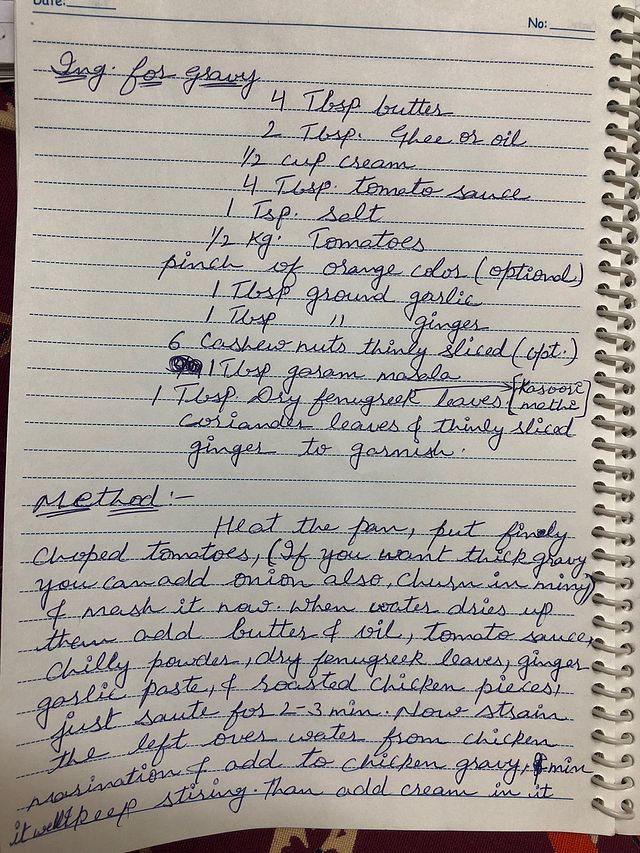 Date:
No:
Ing. for gravy
4 Tbsp butter
2 Tbsp. Ghee or oil
1/2 cup cream
4 Tbsp. tomato sauce
1 Tsp. salt
1/2 Kg. Tomatoes
pinch of orange color (optional)
1 Tbsp ground garlic
1 Tbsp " ginger
6 Cashew nuts thinly sliced (opt.)
1 Tbsp garam masala
1 Tbsp. Dry fenugreek leaves [Kasoori methi]
coriander leaves & thinly sliced
ginger to garnish.
Method:-
Heat the pan, put finely
choped tomatoes, (If you want thick gravy
you can add onion also, churn in mixy)
& mash it now. When water dries up
then add butter & oil, tomato sauce,
chilly powder, dry fenugreek leaves, ginger
garlic paste, & roasted chicken pieces,
just saute for 2-3 min. Now strain
the left over water from chicken
marination & add to chicken gravy, & mix
it well keep stiring. Than add cream in it